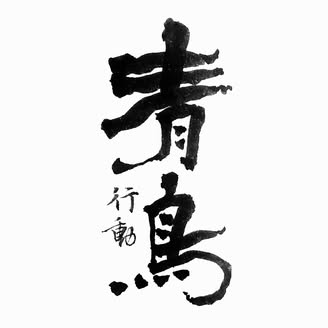 青鳥
行動